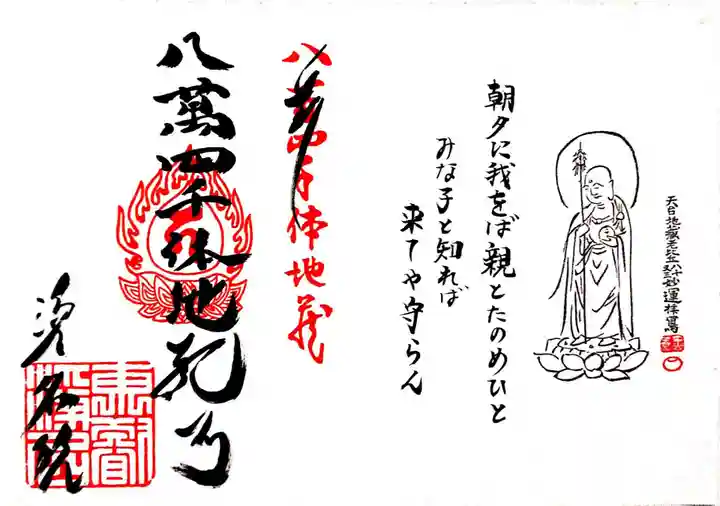 妙運拝寫
朝夕に我をば親とたのめひと
みな子と知れば
来てや守らん
八萬四千体地蔵
八萬四千体地蔵尊
浄名院